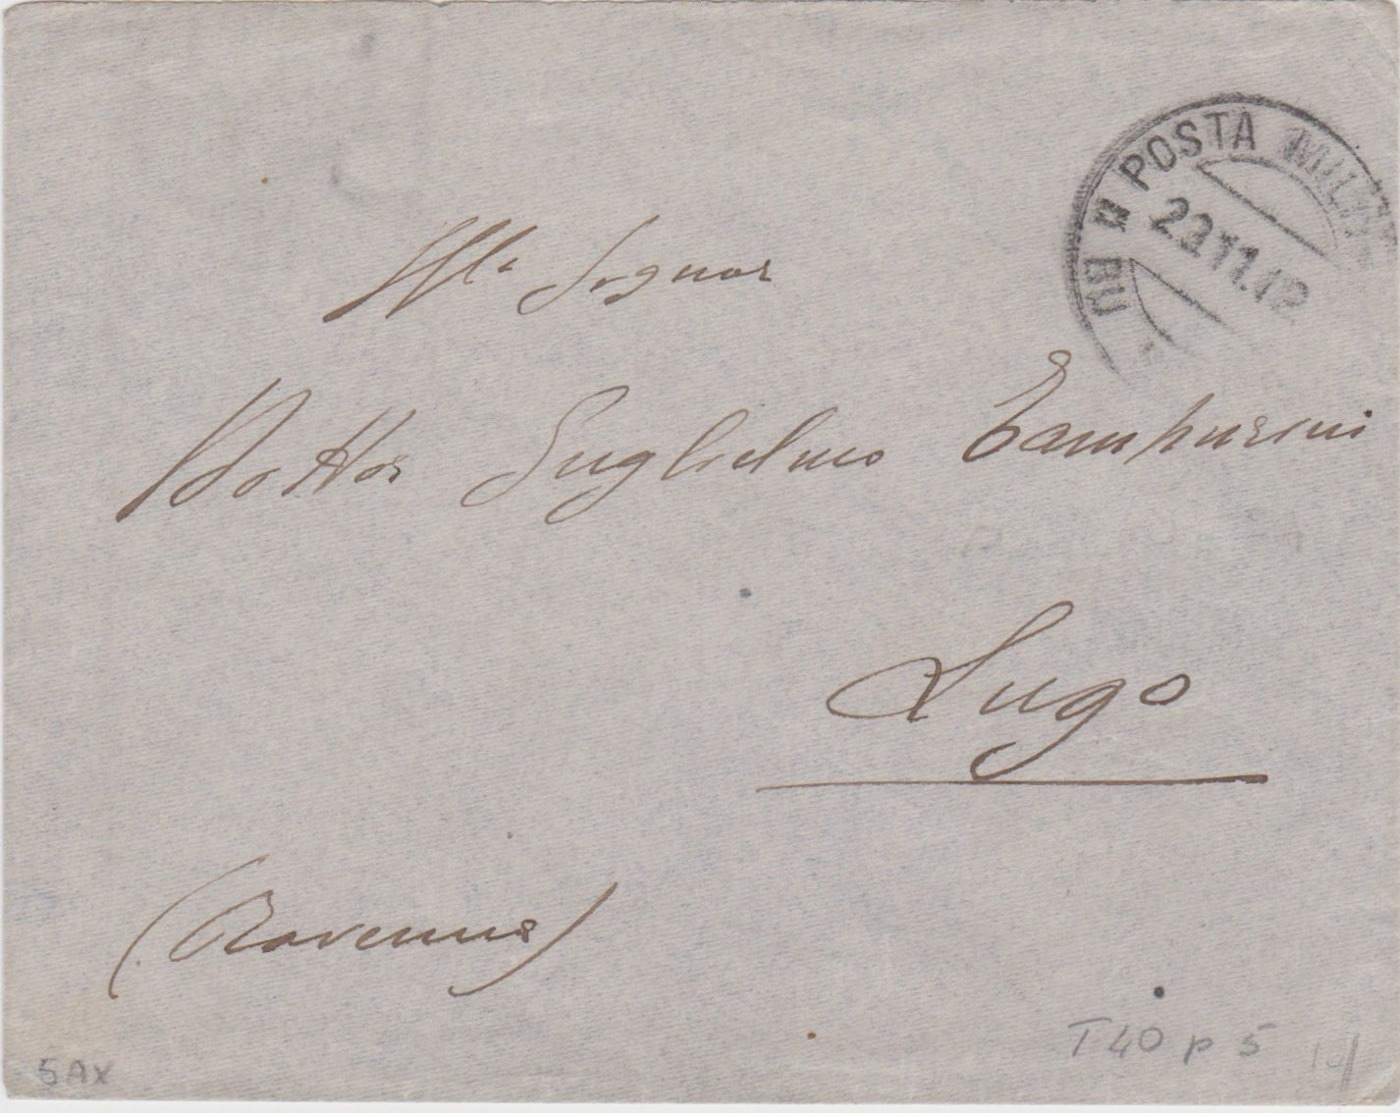 POSTA MILIT
23.11.42
Ill. Signor
Dottor Guglielmo Tampurini
Lugo
(Ravenna)
5AX
T40 p 5